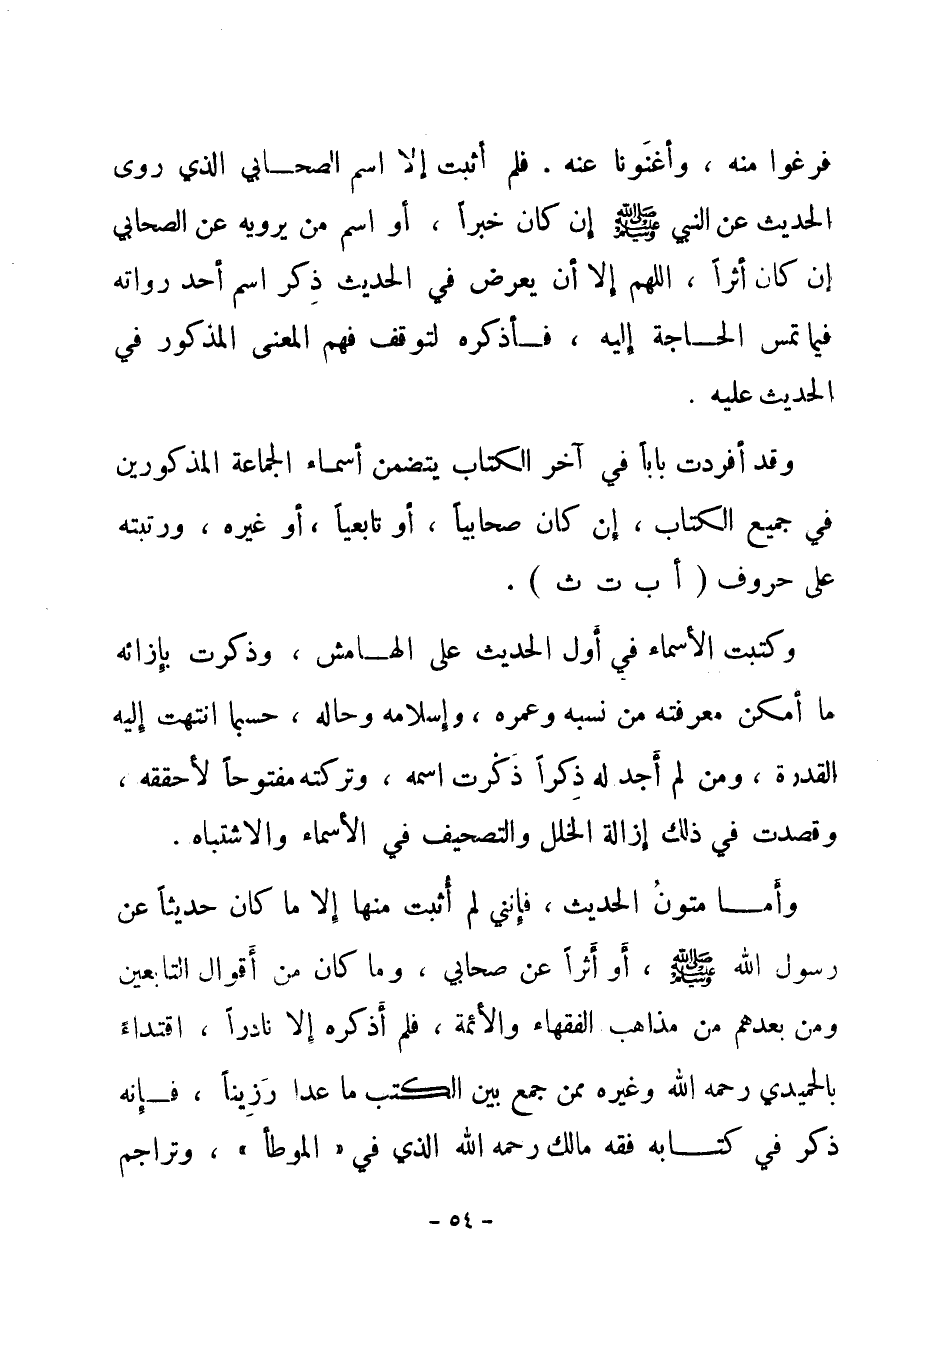 فرغوا منه ، وأغنَونا عنه . فلم أثبت إلا اسم الصحابي الذي روى
الحديث عن النبي ﷺ إن كان خبراً ، أو اسم من يرويه عن الصحابي
إن كان أثراً ، اللهم إلا أن يعرض في الحديث ذِكر اسم أحد رواته
فيما تمس الحاجة إليه ، فأذكره لتوقف فهم المعنى المذكور في
الحديث عليه .
وقد أفردت باباً في آخر الكتاب يتضمن أسماء الجماعة المذكورين
في جميع الكتاب ، إن كان صحابياً ، أو تابعياً ، أو غيره ، ورتبته
على حروف ( أ ب ت ث ) .
وكتبت الأسماء في أول الحديث على الهامش ، وذكرت بإزائه
ما أمكن معرفته من نسبه وعمره ، وإسلامه وحاله ، حسبما انتهت إليه
القدرة ، ومن لم أجد له ذِكراً ذكَرت اسمه ، وتركته مفتوحاً لأحققه ،
وقصدت في ذلك إزالة الخلل والتصحيف في الأسماء والاشتباه .
وأما متونُ الحديث ، فإنني لم أُثبت منها إلا ما كان حديثاً عن
رسول الله ﷺ ، أو أثراً عن صحابي ، وما كان من أقوال التابعين
ومن بعدهم من مذاهب الفقهاء والأئمة ، فلم أذكره إلا نادراً ، اقتداءً
بالحميدي رحمه الله وغيره ممن جمع بين الكتب ما عدا رَزِيناً ، فإنه
ذكر في كتابه فقه مالك رحمه الله الذي في « الموطأ » ، وتراجم
- ٥٤ -